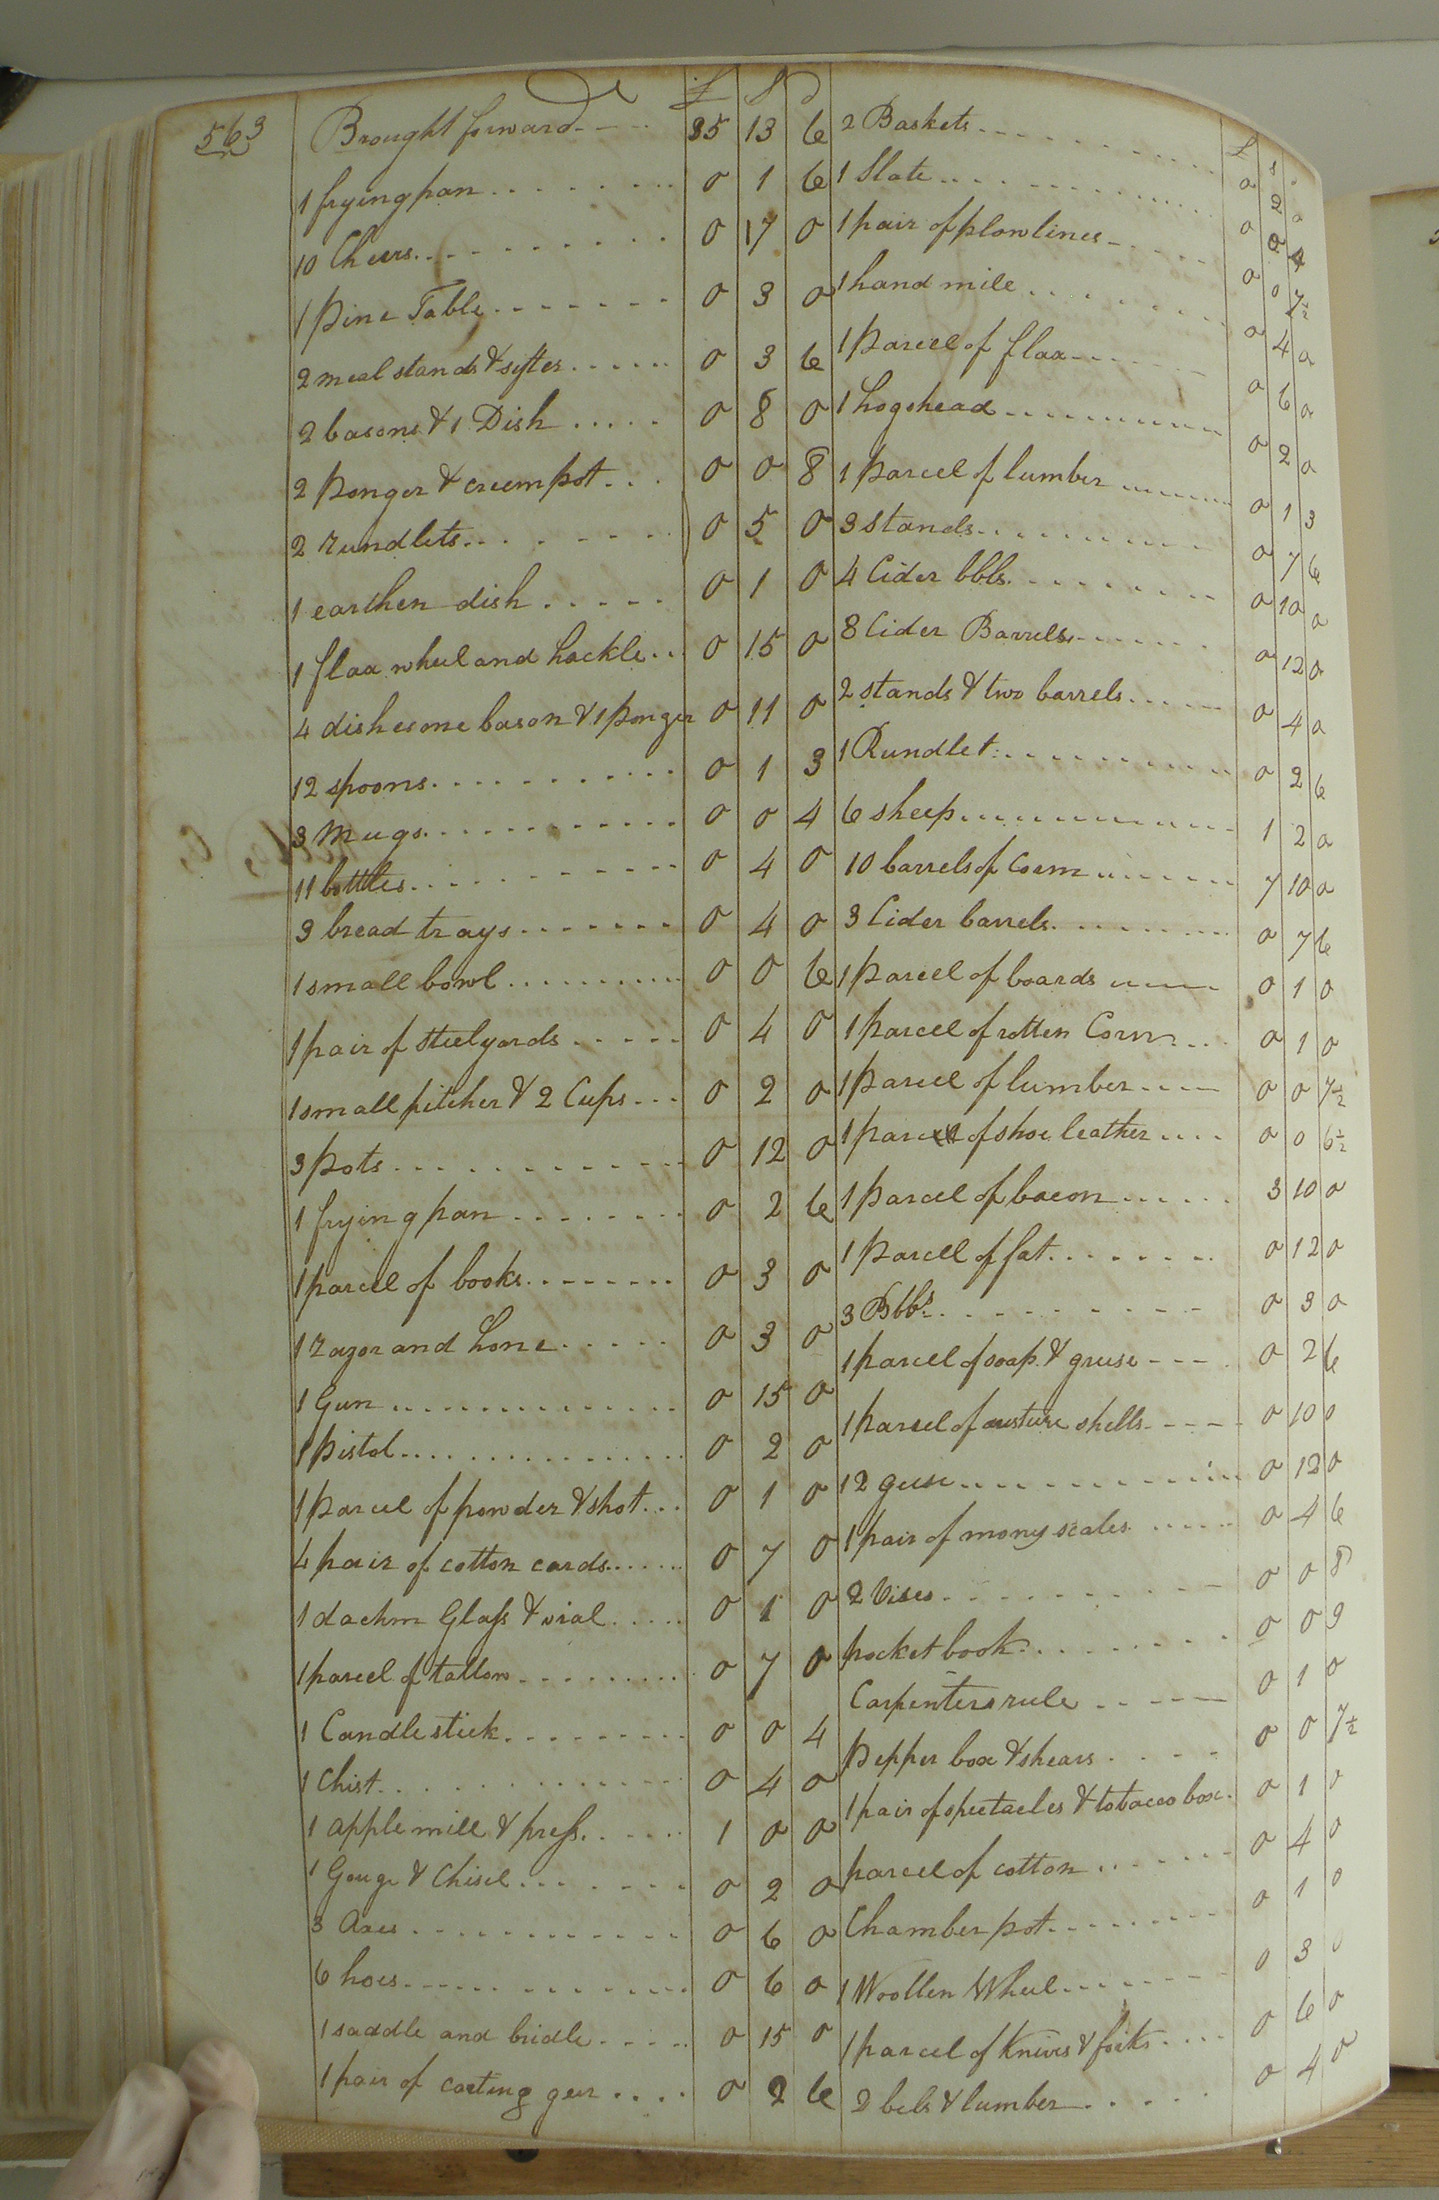 563
£ S D
Brought forward 35 13 6
1 frying pan 0 1 6
10 Cheers 0 17 0
1 Pine Table 0 3 0
2 meal stands & sifter 0 3 6
2 basons & 1 Dish 0 8 0
2 Ponger & creem pot 0 0 8
2 rundlets 0 5 0
1 earthen dish 0 1 0
1 flax wheel and hackle 0 15 0
4 dishes one bason & 1 ponger 0 11 0
12 spoons 0 1 3
3 mugs 0 0 4
11 bottles 0 4 0
3 bread trays 0 4 0
1 small bowl 0 0 6
1 pair of steelyards 0 4 0
1 small pitcher & 2 Cups 0 2 0
3 Pots 0 12 0
1 frying pan 0 2 6
1 parcel of books 0 3 0
1 razor and hone 0 3 0
1 Gun 0 15 0
1 Pistol 0 2 0
1 Parcel of powder & shot 0 1 0
4 pair of cotton cards 0 7 0
1 dachm Glass & vial 0 1 0
1 parcel of tallow 0 7 0
1 Candlestick 0 0 4
1 Chist 0 4 0
1 apple mill & press 1 0 0
1 Gouge & Chisel 0 2 0
3 Axes 0 6 0
6 hoes 0 6 0
1 saddle and bridle 0 15 0
1 pair of carting geer 0 2 6
£ s
2 Baskets 0 2 0
1 Slate 0 0 4
1 pair of plowlines 0 0 7½
1 hand mill 0 4 0
1 Parcel of flax 0 6 0
1 hogshead 0 2 0
1 Parcel of lumber 0 1 3
3 stands 0 7 6
4 Cider bbls. 0 10 0
8 Cider Barrels 0 12 0
2 stands & two barrels 0 4 0
1 Rundlet 0 2 6
6 sheep 1 2 0
10 barrels of Corn 7 10 0
3 Cider barrels 0 7 6
1 Parcel of boards 0 1 0
1 Parcel of rotten Corn 0 1 0
1 Parcel of lumber 0 0 7½
1 Parcel of shoe leather 0 0 6½
1 Parcel of bacon 3 10 0
1 Parcel of fat 0 12 0
3 Bbls 0 3 0
1 parcel of soap & greese 0 2 6
1 parcel of austure shells 0 10 0
12 geese 0 12 0
1 pair of mony scales 0 4 6
2 Vises 0 0 8
pocket book 0 0 9
Carpenters rule 0 1 0
Pepper box & shears 0 0 7½
1 pair of spectacles & tobacco box 0 1 0
parcel of cotton 0 4 0
Chamber pot 0 1 0
1 Woollen Wheel 0 3 0
1 Parcel of Knives & forks 0 6 0
2 bels & lumber 0 4 0